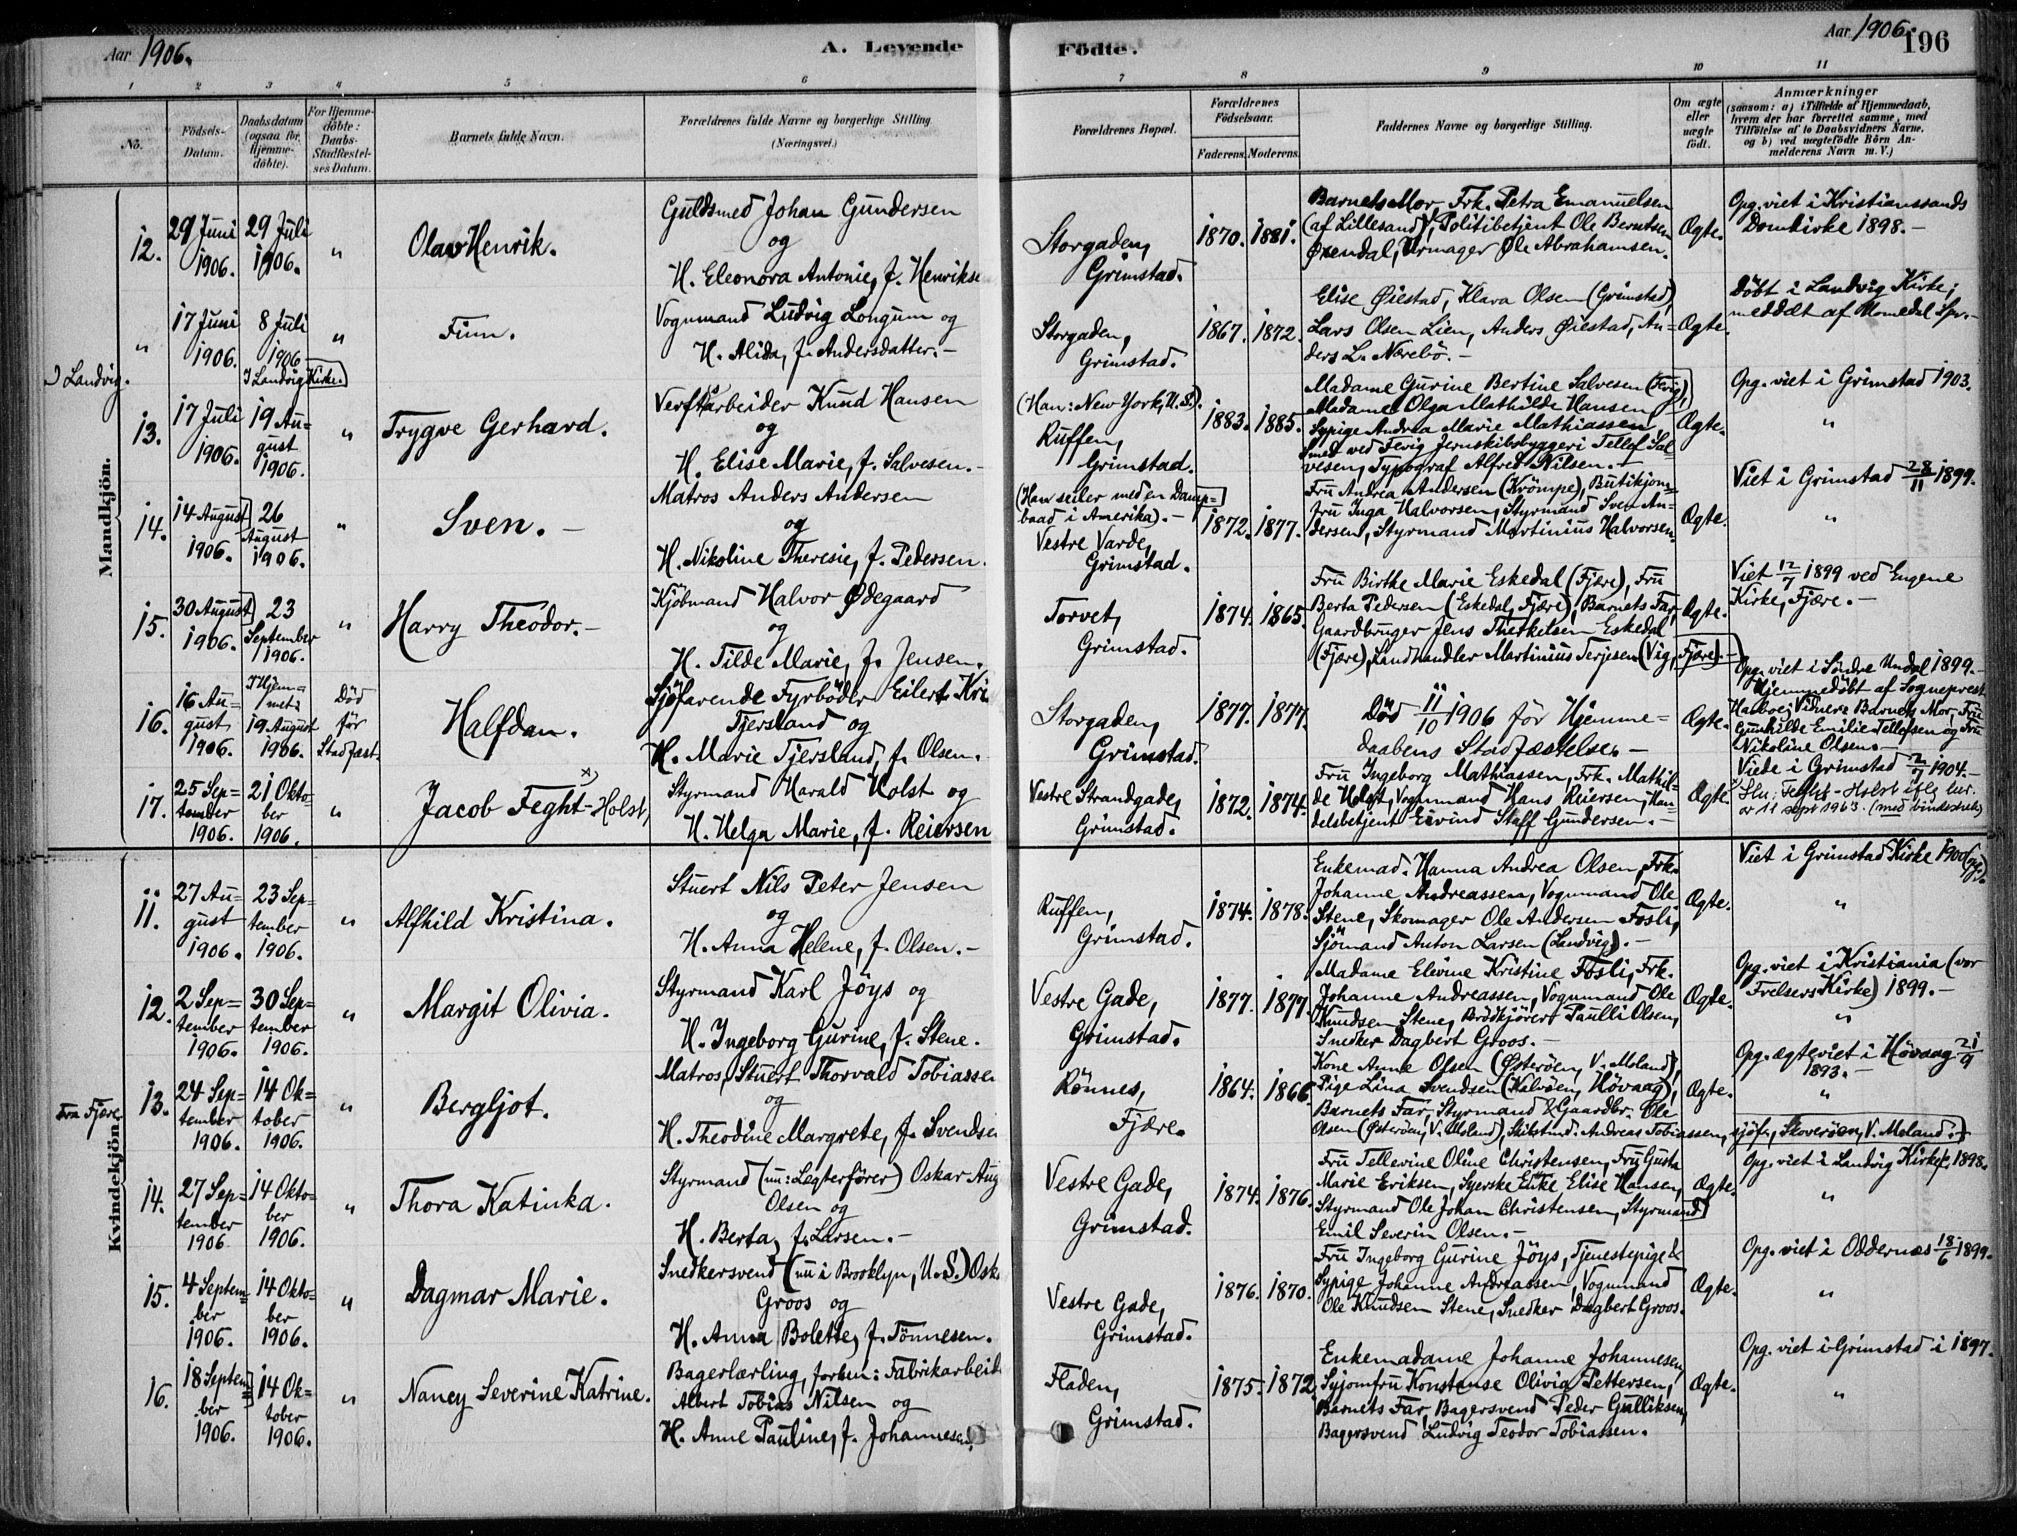 Aar 1906.
A. Levende Födte.
Aar 1906. 196
1 2 3 4 5 6 7 8 9 10 11
No.
Födsels-Datum.
Daabsdatum (ogsaa for Hjemme-döbte).
For Hjemme-döbte: Daabs-Stadfæstel-ses Datum.
Barnets fulde Navn.
Forældrenes fulde Navne og borgerlige Stilling. (Næringsvei.)
Forældrenes Bopæl.
Forældrenes Födselsaar.
Faderens. Moderens.
Faddernes Navne og borgerlige Stilling.
Om ægte eller uægte födt.
Anmærkninger
(saasom: a) i Tilfælde af Hjemmedaab,
hvem der har forrettet samme, med
Tilföielse af to Daabsvidners Navne,
og b) ved uægtefödte Börn An-
melderens Navn m. V.)
Mandkjön.
12. 29 Juni 1906. 29 Juli 1906. "
Olav Henrik.
Guldsmed Johan Gundersen
og
H. Eleonora Antonie, f. Henrikse
Storgaden,
Grimstad.
1870. 1881.
Barnets Mor, Frk. Petra Emanuelsen
(af Lillesand), Politibetjent Ole Berntsen
Örendal, Urmager Ole Abrahamsen.
Ægte.
Opg. viet i Kristianssands
Domkirke 1898. -
" 17 Juni 1906. 8 Juli 1906 "
I Landvig Kirke.
Landvig.
Finn.
Vognmand Ludvig Longum og
H. Alida, f. Andersdatter. -
Storgaden,
Grimstad.
1867. 1872.
Elise Øiestad, Klara Olsen (Grimstad),
Lars Olsen Lien, Anders Øiestad, An=
ders L. Nörebö. -
Ægte.
Döbt i Landvig Kirke;
meddelt af Homedal Spr. -
13. 17 Juli 1906. 19 Au=gust 1906. "
Trygve Gerhard.
Verftsarbeider Knud Hansen
og
H. Elise Marie, f. Salvesen. -
(Han: New York, U.S.).
Ruffen,
Grimstad.
1883. 1885.
Madame Gurine Bertine Salvesen (Fevig),
Madame Olga Mathilde Hansen,
Sypige Andrea Marie Mathiassen,
Smed ved Fevig Jernskibsbyggeri Tellef Sal=
vesen, Typograf Alfred Nilsen. -
Ægte.
Opg. viet i Grimstad 1903.
"
14. 14 August 1906. 26 August 1906. "
Sven. -
Matros Anders Andersen
og
H. Nikoline Theresie, f. Pedersen.
(Han seiler med en Damp=
baad i Amerika). -
Vestre Varde,
Grimstad.
1872. 1877.
Fru Andrea Andersen (Krömpe), Butikjom=
fru Inga Halvorsen, Styrmand Sven An=
dersen, Styrmand Martinius Halvorsen.
Ægte.
Viet i Grimstad 28/11 1899.
"
15. 30 August 1906. 23 September 1906. "
Harry Theodor. -
Kjöbmand Halvor Ødegaard
og
H. Tilde Marie, f. Jensen.
Torvet,
Grimstad.
1874. 1865.
Fru Birthe Marie Eskedal (Fjære), Fru
Berta Pedersen (Eskedal, Fjære), Barnets Far,
Gaardbruger Jens Thetkilsen Eskedal
(Fjære), Landhandler Martinius Terjesen (Vig, Fjære). -
Ægte.
Viet 12/7 1899 ved Engene
Kirke, Fjære. -
16. 16 Au=gust 1906. 19 August 1906. Död för Stadfæst.
Halfdan.
Sjöfarende Fyrböder Eilert Kri
Tjersland og
H. Marie Tjersland, f. Olsen. -
Storgaden,
Grimstad.
1877. 1877.
Död 11/10 1906 för Hjemme=
daabens Stadfæstelse. -
Ægte.
Opg. viet i Söndre Undal 1899. -
Hjemmedöbt af Sogneprest
Harboe; Vidner: Barnets Mor, Fru
Gunhilde Emilie Tellefsen og Fru
Nikoline Olsen. -
17. 25 Sep=tember 1906. 21 Okto=ber 1906. "
Jacob Feght-Holst, x)
Styrmand Harald Holst og
H. Helga Marie, f. Reiersen
Vestre Strandgade,
Grimstad.
1872. 1874.
Fru Ingeborg Mathiassen, Frk. Mathil=
de Holst, Vognmand Hans Reiersen, Han=
delsbetjent Eivind Staff Gundersen. -
Ægte.
Viede i Grimstad 2/7 1904. -
Feght-Holst iflg.
11 sept 1963. (med bindestrek)
Kvindekjön.
11. 27 Au=gust 1906. 23 Sep=tember 1906. "
Alfhild Kristina.
Stuert Nils Peter Jensen
og
H. Anna Helene, f. Olsen. -
Ruffen,
Grimstad.
1874. 1878.
Enkemad. Hanna Andrea Olsen, Frk.
Johanne Andreassen, Vognmand Ole
Stene, Skomager Ole Andersen Fosli,
Sjömand Anton Larsen (Landvig). -
Ægte.
Viet i Grimstad Kirke 1900 (opg.).
"
12. 2 Sep=tember 1906. 30 Sep=tember 1906. "
Margit Olivia.
Styrmand Karl Jöys og
H. Ingeborg Gurine, f. Stene.
Vestre Gade,
Grimstad.
1877. 1877.
Madame Elevine Kristine Fosli, Frk.
Johanne Andreassen, Vognmand Ole
Knudsen Stene, Brödkjörer Paulli Olsen,
Snedker Dagbert Groos. -
Ægte.
Opg. viet i Kristiania (vor
Frelsers Kirke) 1899. -
"
Fra Fjære
13. 24 Sep=tember 1906. 14 Ok=tober 1906. "
Bergljot.
Matros, Stuert Thorvald Tobiassen
og
H. Theodine Margrete, f. Svendse
Rönnes,
Fjære.
1864. 1866.
Kone Anne Olsen (Østeröen, V. Moland),
Pige Lina Svendsen (Kalvöen, Hövaag),
Barnets Far, Styrmand & Gaardbr. Ole
Olsen (Østeröen, V. Moland), Skibstmd. Andreas Tobiassen, sjöf., Skoveröen, V. Moland. -
Ægte.
Opg. ægteviet i Hövaag 21/9
1893. -
"
14. 27 Sep=tember 1906 14 Okto=ber 1906. "
Thora Katinka.
Styrmand (nu: Legterförer) Oskar Aug
Olsen og
H. Berta, f. Larsen. -
Vestre Gade,
Grimstad.
1874. 1876.
Fru Tellevine Oline Christensen, Fru Gusta
Marie Eriksen, Syerske Enke Elise Hansen,
Styrmand Ole Johan Christensen, Styrmand
Emil Severin Olsen. -
Ægte.
Opg. viet i Landvig Kirke 1898.
"
15. 4 Septem=ber 1906. 14 Okto=ber 1906. "
Dagmar Marie.
Snedkersvend (nu i Brooklyn, U.S.) Oska
Groos og
H. Anna Bolette, f. Tönnesen.
Vestre Gade,
Grimstad.
1876. 1870.
Fru Ingeborg Gurine Jöys, Tjenestepige &
Sypige Johanne Andreassen, Vognmand
Ole Knudsen Stene, Snedker Dagbert Groos.
Ægte.
Opg. viet i Oddernæs 18/6 1899.
"
16. 18 Septem=ber 1906. 14 Ok=tober 1906. "
Nancy Severine Katrine.
Bagerlærling, forhen: Fabrikarbeid
Albert Tobias Nilsen og
H. Anne Pauline, f. Johannesen,
Fladen,
Grimstad.
1875. 1872.
Enkemadame Johanne Johannesen,
Syjomfru Konstanse Olivia Pettersen,
Barnets Far, Bagersvend Peder Gulliksen,
Bagersvend Ludvig Teodor Tobiassen.
Ægte.
Opg. viet i Grimstad i 1897.
"